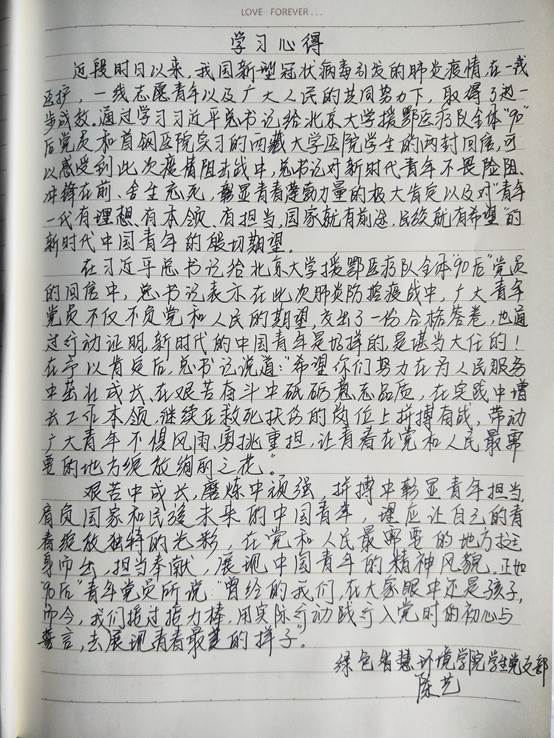 LOVE FOREVER...
学习心得
近段时日以来,我国新型冠状病毒引发的肺炎疫情,在一线
医护,一线志愿青年以及广大人民的共同努力下,取得了进一
步成效。通过学习习近平总书记给北京大学援鄂医疗队全体“90
后”党员和首钢医院实习的西藏大学医院学生的两封回信,可
以感受到此次疫情阻击战中,总书记对新时代青年不畏险阻、
冲锋在前、舍生忘死,彰显青春蓬勃力量的极大肯定以及对“青年
一代有理想、有本领、有担当,国家就有前途,民族就有希望”的
新时代中国青年的殷切期望。
在习近平总书记给北京大学援鄂医疗队全体“90后”党员
的回信中,总书记表示在此次肺炎防控疫战中,广大青年
党员不仅不负党和人民的期望,交出了一份合格答卷,也通
过行动证明,新时代的中国青年是好样的,是堪当大任的!
在予以肯定后,总书记说道:“希望你们努力在为人民服务
中茁壮成长、在艰苦奋斗中砥砺意志品质、在实践中增
长工作本领,继续在救死扶伤的岗位上拼搏奋战,带动
广大青年不惧风雨、勇挑重担,让青春在党和人民最需
要的地方绽放绚丽之花。”
艰苦中成长,磨炼中顽强,拼搏中彰显青年担当,
肩负国家和民族未来的中国青年,理应让自己的青
春绽放独特的光彩,在党和人民最需要的地方挺
身而出,担当奉献,展现中国青年的精神风貌。正如
“90后”青年党员所说“曾经的我们,在大家眼中还是孩子,
而今,我们接过接力棒,用实际行动践行入党时的初心与
誓言,去展现青春最美的样子”。
绿色智慧环境学院学生党支部
陈艺